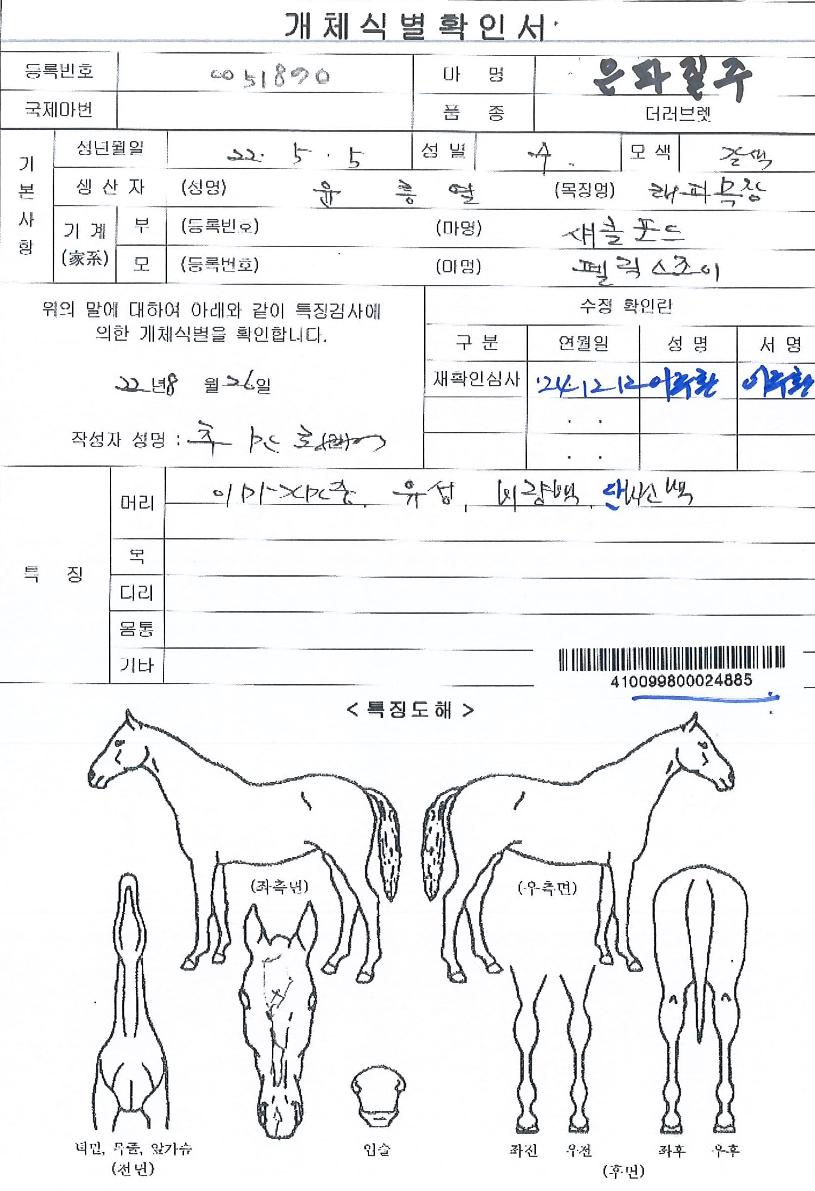 개체식별확인서
등록번호 0051890 마 명 은파질주
국제마번 품 종 더러브렛
기본사항
생년월일 22. 5. 5 성 별 수. 모 색 갈색
생 산 자 (성명) 윤흥열 (목장명) 해피목장
기계(家系) 부 (등록번호) (마명) 섀클포드
모 (등록번호) (마명) 펠릭스조이
위의 말에 대하여 아래와 같이 특징검사에
의한 개체식별을 확인합니다.
22년8 월 26일
작성자 성명 : 추
수정 확인란
구 분 연월일 성 명 서 명
재확인심사 '24.12.12
. .
. .
특 징
머리 이마사미중, 유성, 비량백, 단비순백
목
다리
몸통
기타
410099800024885
< 특징도해 >
(좌측면) (우측면)
턱밑, 목줄, 앞가슴
(전면)
입술
좌전 우전 좌후 우후
(후면)